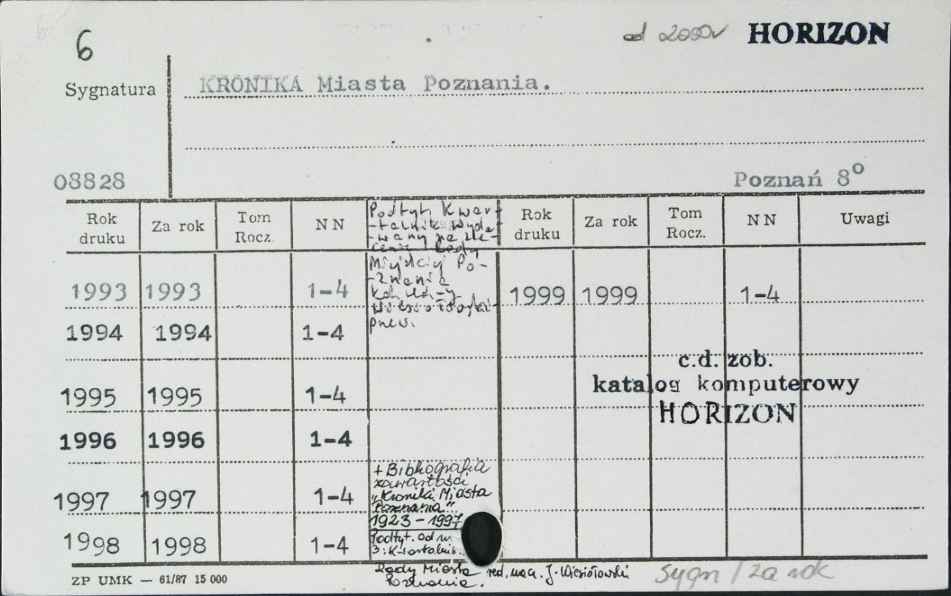 6
od 2000r HORIZON
Sygnatura KRONIKA Miasta Poznania.
08828 Poznań 8°
Rok druku Za rok Tom Rocz. NN Podtyt. Kwar- Rok druku Za rok Tom Rocz. NN Uwagi
-talnik wyda-
-wany na zle-
cenie Rady
Miejskiej Po-
-znania
1993 1993 1-4 1999 1999 1-4
1994 1994 1-4
c.d. zob.
1995 1995 1-4 katalog komputerowy
HORIZON
1996 1996 1-4
+ Bibliografia
zawartości
1997 1997 1-4 „Kroniki Miasta
Poznania"
1923-1997
1998 1998 1-4 Podtyt. od nr
3: Kwartalnik
Rady Miasta red. nacz. J. Wiesiołowski sygn / za rok
Poznania.
ZP UMK — 61/87 15 000